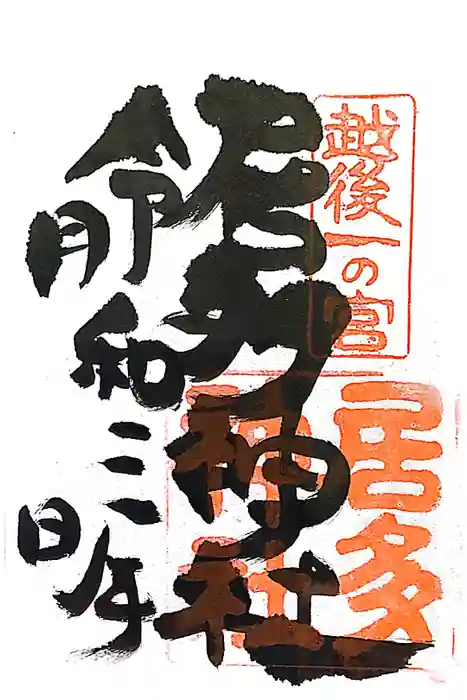 越後一の宮
居多
神社
居多神社
令和三年
月
日